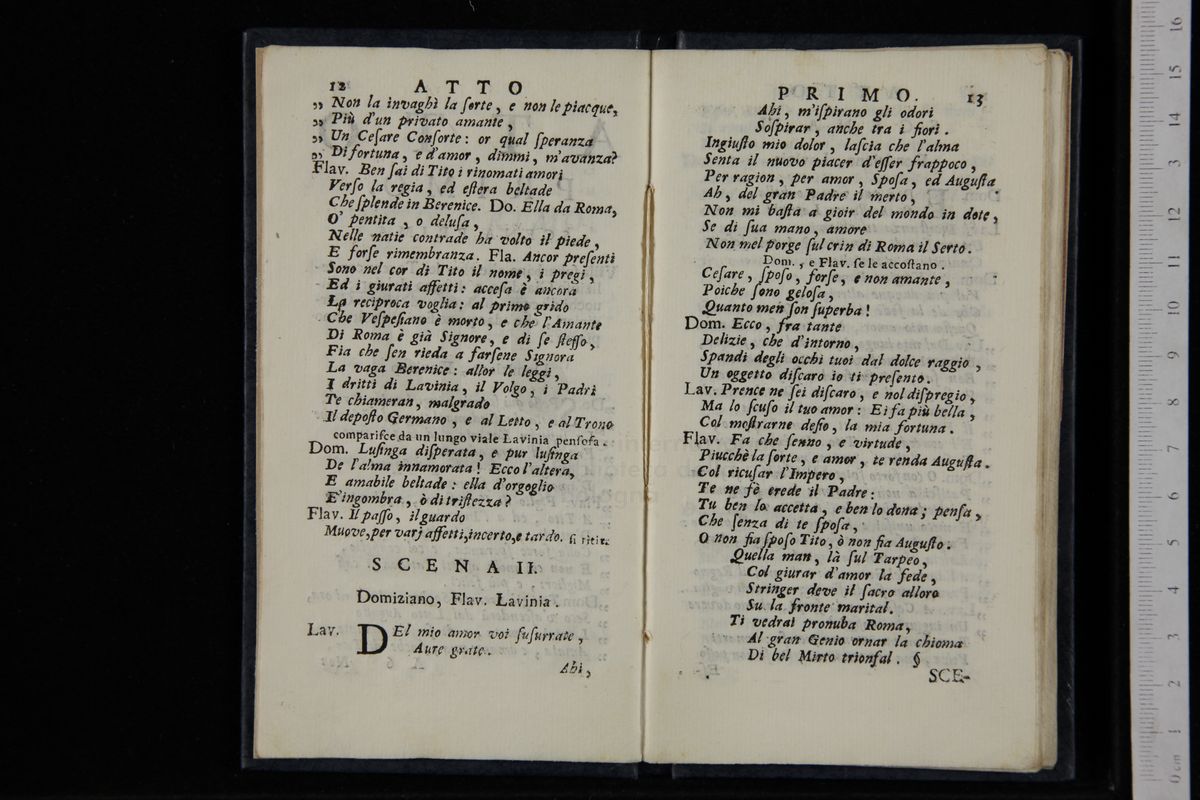 12 ATTO
„ Non la invaghì la ſorte, e non le piacque,
„ Più d'un privato amante,
„ Un Ceſare Conſorte: or qual ſperanza
„ Di fortuna, e d'amor, dimmi, m'avanza?
Flav. Ben ſai di Tito i rinomati amori
Verſo la regia, ed eſtera beltade
Che ſplende in Berenice. Do. Ella da Roma,
O' pentita, o deluſa,
Nelle natie contrade ha volto il piede,
E forſe rimembranza. Fla. Ancor preſenti
Sono nel cor di Tito il nome, i pregi,
Ed i giurati affetti: acceſa è ancora
La reciproca voglia: al primo grido
Che Veſpeſiano è morto, e che l'Amante
Di Roma è già Signore, e di ſe ſteſſo,
Fia che ſen rieda a farſene Signora
La vaga Berenice: allor le leggi,
I dritti di Lavinia, il Volgo, i Padri
Te chiameran, malgrado
Il depoſto Germano, e al Letto, e al Trono
compariſce da un lungo viale Lavinia penſoſa.
Dom. Luſinga diſperata, e pur luſinga
De l'alma innamorata! Ecco l'altera,
E amabile beltade: ella d'orgoglio
E' ingombra, ò di triſtezza?
Flav. Il paſſo, il guardo
Muove, per varj affetti, incerto, e tardo. ſi ritir.
SCENA II.
Domiziano, Flav. Lavinia.
Lav. DEl mio amor voi ſuſurrate,
Aure grate.
Ahi,
PRIMO. 13
Ahi, m'iſpirano gli odori
Soſpirar, anche tra i fiori.
Ingiuſto mio dolor, laſcia che l'alma
Senta il nuovo piacer d'eſſer frappoco,
Per ragion, per amor, Spoſa, ed Auguſta
Ah, del gran Padre il merto,
Non mi baſta a gioir del mondo in dote,
Se di ſua mano, amore
Non mel porge ſul crin di Roma il Serto.
Dom., e Flav. ſe le accoſtano.
Ceſare, ſpoſo, forſe, e non amante,
Poiche ſono geloſa,
Quanto men ſon ſuperba!
Dom. Ecco, fra tante
Delizie, che d'intorno,
Spandi degli occhi tuoi dal dolce raggio,
Un oggetto diſcaro io ti preſento.
Lav. Prence ne ſei diſcaro, e nol diſpregio,
Ma lo ſcuſo il tuo amor: Ei fa più bella,
Col moſtrarne deſio, la mia fortuna.
Flav. Fa che ſenno, e virtude,
Piucchè la ſorte, e amor, te renda Auguſta.
Col ricuſar l'Impero,
Te ne fè erede il Padre:
Tu ben lo accetta, e ben lo dona; penſa,
Che ſenza di te ſpoſa,
O non fia ſpoſo Tito, ò non fia Auguſto.
Quella man, là ſul Tarpeo,
Col giurar d'amor la fede,
Stringer deve il ſacro alloro
Su la fronte marital.
Ti vedrai pronuba Roma,
Al gran Genio ornar la chioma
Di bel Mirto trionfal. §
SCE-